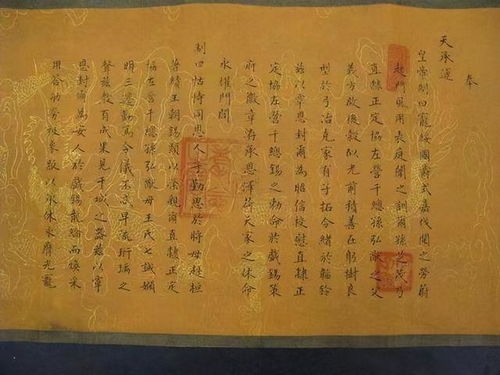 奉
天承運
皇帝制曰寵綏國爵式嘉伐閱之勞蔚
起門風用表庭闈之訓爾孫之茂乃
直隸正定協左營千總孫弘猷之父
義方啟後穀似光前積善在躬樹良
型於弓冶克家有子拓令緒於韜鈐
茲以覃恩封爾為昭信校尉直隸正
定協左營千總錫之勅命於戲錫策
府之徽章洊承恩澤荷天家之休命
永耀門閭
制曰怙恃同恩人子勤思於將母赳桓
著績王朝錫類以榮親爾直隸正定
協左營千總孫弘猷母王氏七誡嫻
明三遷勤篤令儀不忒早流珩瑀之
聲慈教有成果見干城之器茲以覃
恩封爾為安人於戲錫龍綸而煥采
用答劬勞被象服以承休永膺光寵